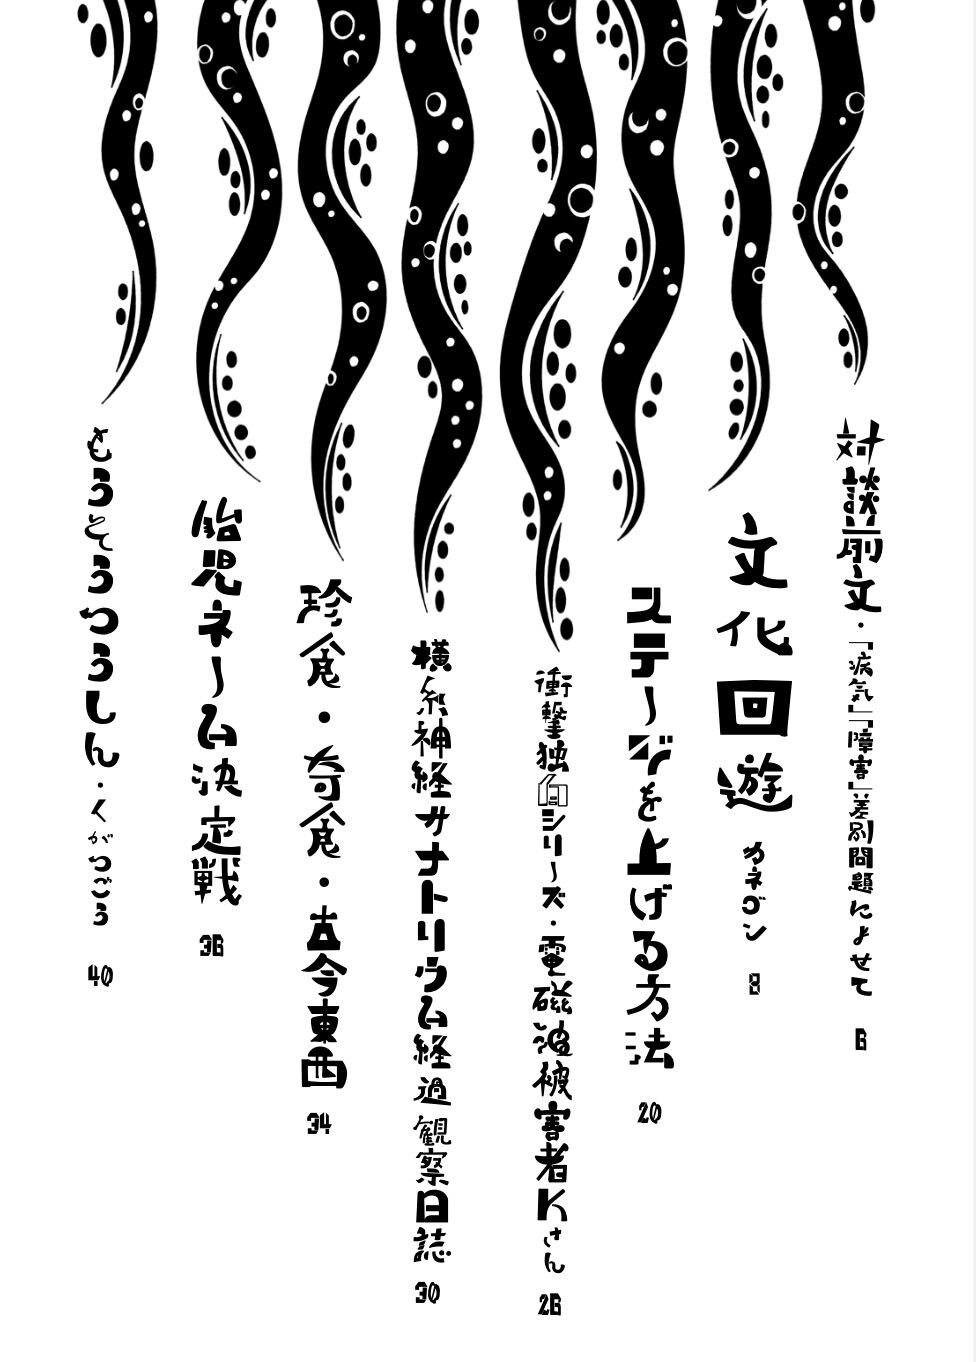 対談前文・「病気」「障害」差別問題によせて 6
文化回遊 カネゴン 8
ステージを上げる方法 20
衝撃独白シリーズ・電磁波被害者Kさん 26
横糸神経サナトリウム経過観察日誌 30
珍食・奇食・古今東西 34
胎児ネーム決定戦 36
もうそうつうしん・くがつごう 40